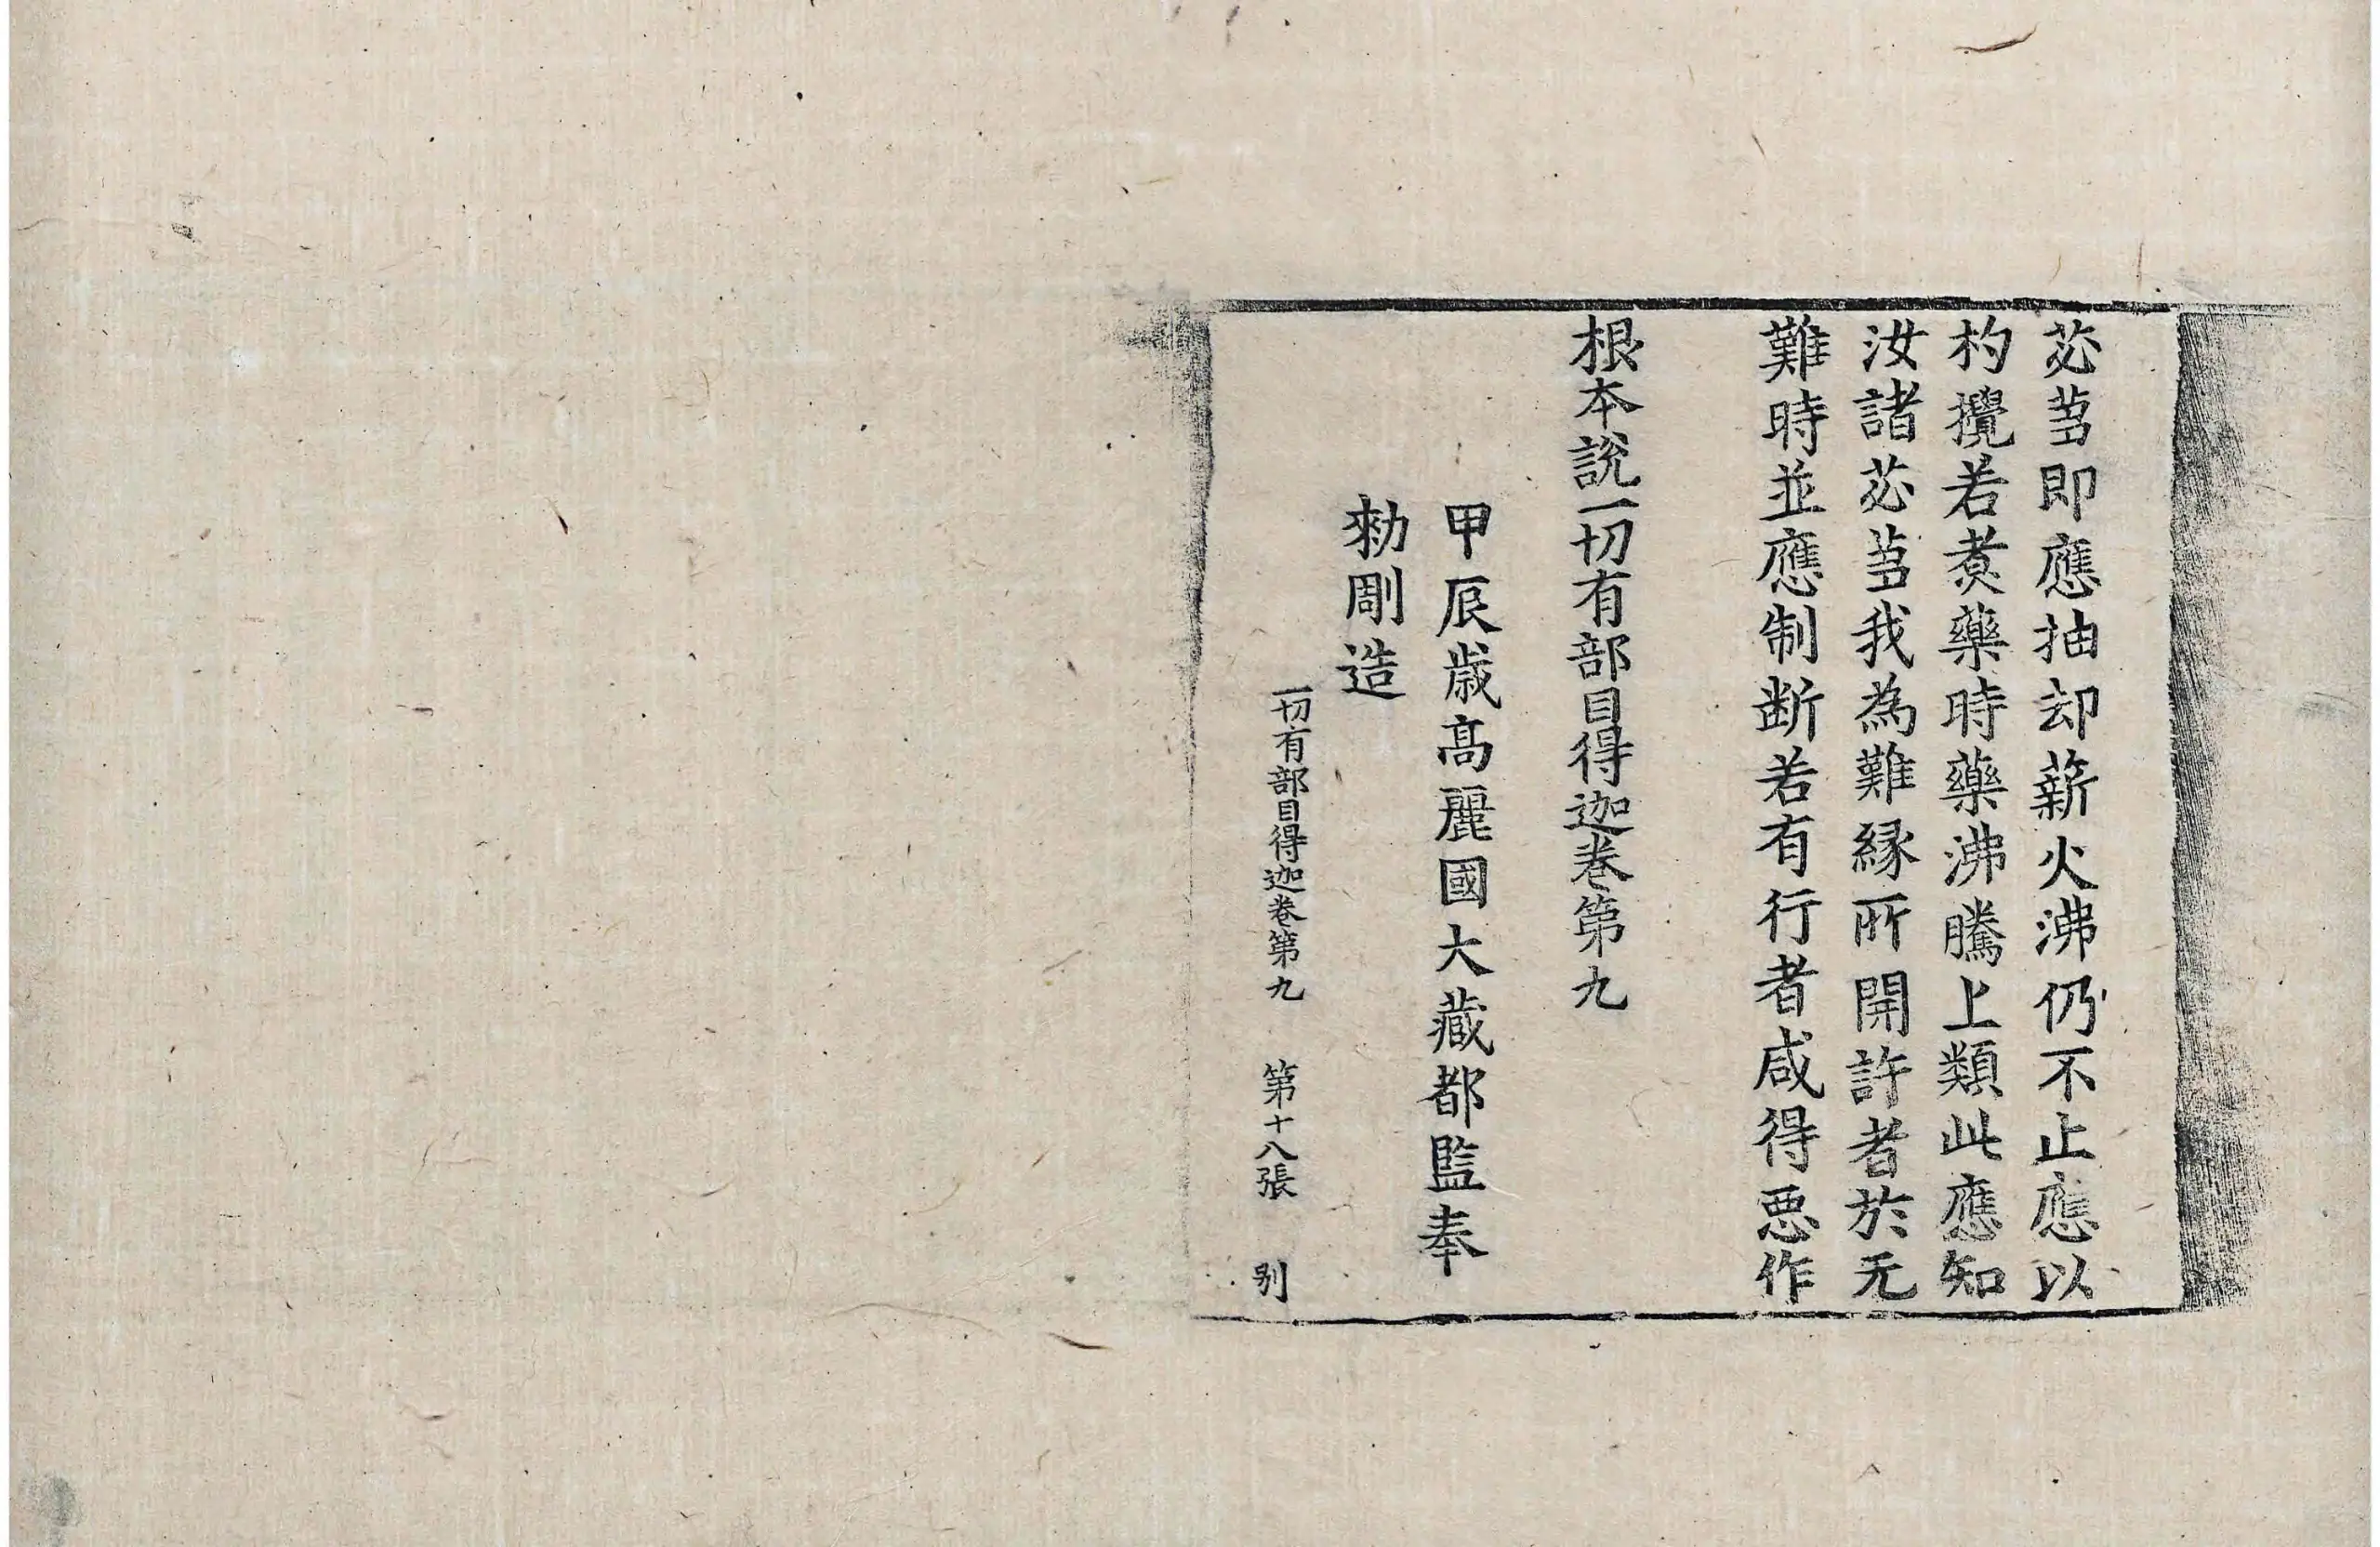 苾芻即應抽却薪火沸仍不止應以
杓攪若煮藥時藥沸騰上類此應知
汝諸苾芻我為難緣所開許者於无
難時並應制断若有行者咸得惡作
根本說一切有部目得迦卷第九
甲辰歲高麗國大藏都監奉
勑彫造
一切有部目得迦卷第九 第十八張 别